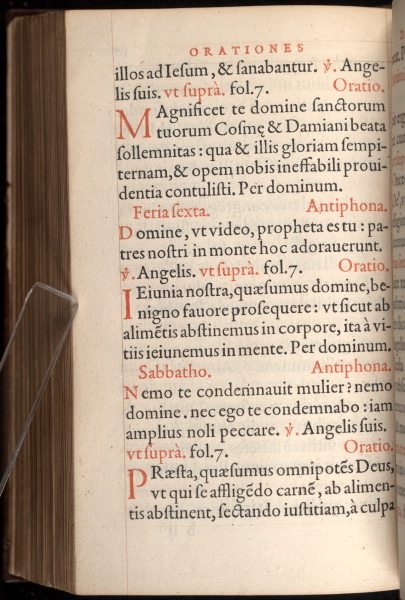 ORATIONES
illos ad Iesum, & sanabantur. ℣. Ange-
lis suis. vt suprà. fol.7. Oratio.
MAgnificet te domine sanctorum
tuorum Cosmę & Damiani beata
sollemnitas : qua & illis gloriam sempi-
ternam, & opem nobis ineffabili proui-
dentia contulisti. Per dominum.
Feria sexta. Antiphona.
Domine, vt video, propheta es tu : pa-
tres nostri in monte hoc adorauerunt.
℣. Angelis. vt suprà. fol.7. Oratio.
IEiunia nostra, quæsumus domine, be-
nigno fauore prosequere : vt sicut ab
alimētis abstinemus in corpore, ita à vi-
tiis ieiunemus in mente. Per dominum.
Sabbatho. Antiphona.
Nemo te condemnauit mulier ? nemo
domine. nec ego te condemnabo : iam
amplius noli peccare. ℣. Angelis suis.
vt suprà. fol.7. Oratio.
PRæsta, quæsumus omnipotēs Deus,
vt qui se affligēdo carnē, ab alimen-
tis abstinent, sectando iustitiam, à culpa